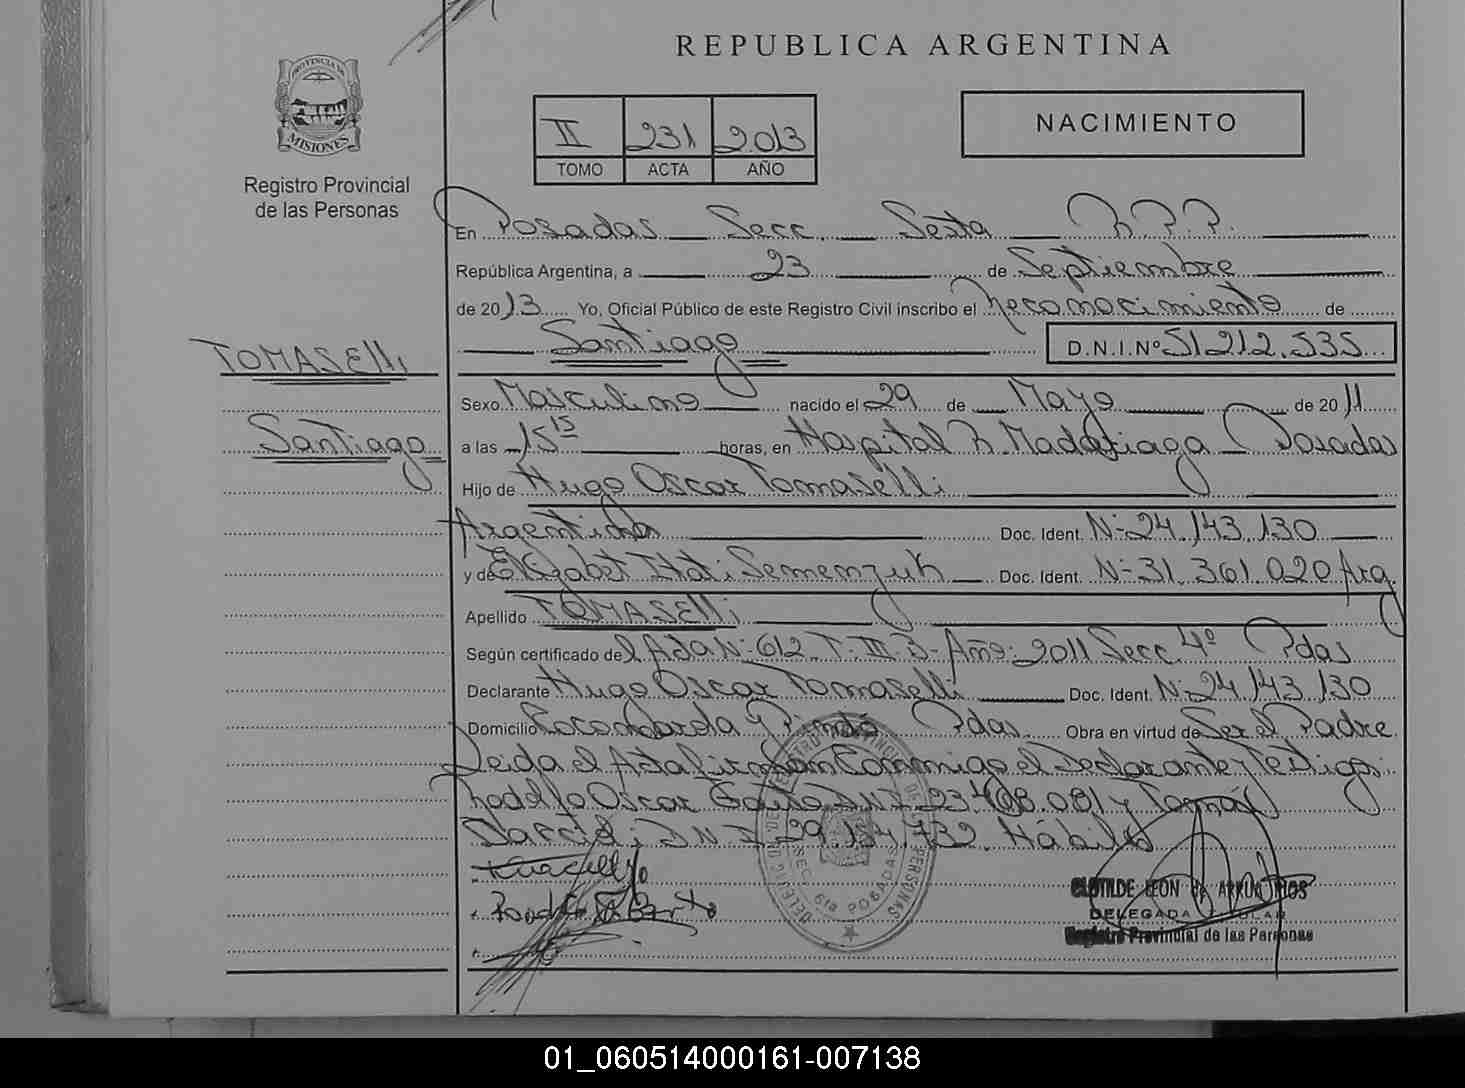 REPUBLICA ARGENTINA
PROVINCIA DE
MISIONES
Registro Provincial
de las Personas
II 231 2013
TOMO ACTA AÑO
NACIMIENTO
En Posadas Secc. Sexta R.P.P.
República Argentina, a 23 de Septiembre
de 2013 Yo, Oficial Público de este Registro Civil inscribo el Reconocimiento de
Santiago D.N.I.Nº 51.212.535
TOMASElli
Santiago
Sexo Masculino nacido el 29 de Mayo de 2011
a las 15 15 horas, en Hospital R. Madariaga Posadas
Hijo de Hugo Oscar Tomaselli
Argentina Doc. Ident. Nº 24.143.130
y de Elizabet Itati Semenzuk Doc. Ident. Nº 31.361.020 Arg.
Apellido TOMASElli
Según certificado del Acta Nº 612 T. III B Año: 2011 Secc. 4º Pdas
Declarante Hugo Oscar Tomaselli Doc. Ident. Nº 24.143.130
Domicilio Pdas. Obra en virtud de Ser el Padre
Leida el Acta firman Conmigo el Declarante y Testigos:
Rodolfo Oscar D.N.I. 23.468.081 y Tomás
D.N.I. 29. .732. Hábiles
DELEG. DEL REGISTRO PROVINCIAL DE LAS PERSONAS
SEC. 6ta POSADAS
CLOTILDE LEON de
DELEGADA TITULAR
Registro Provincial de las Personas
01_060514000161-007138